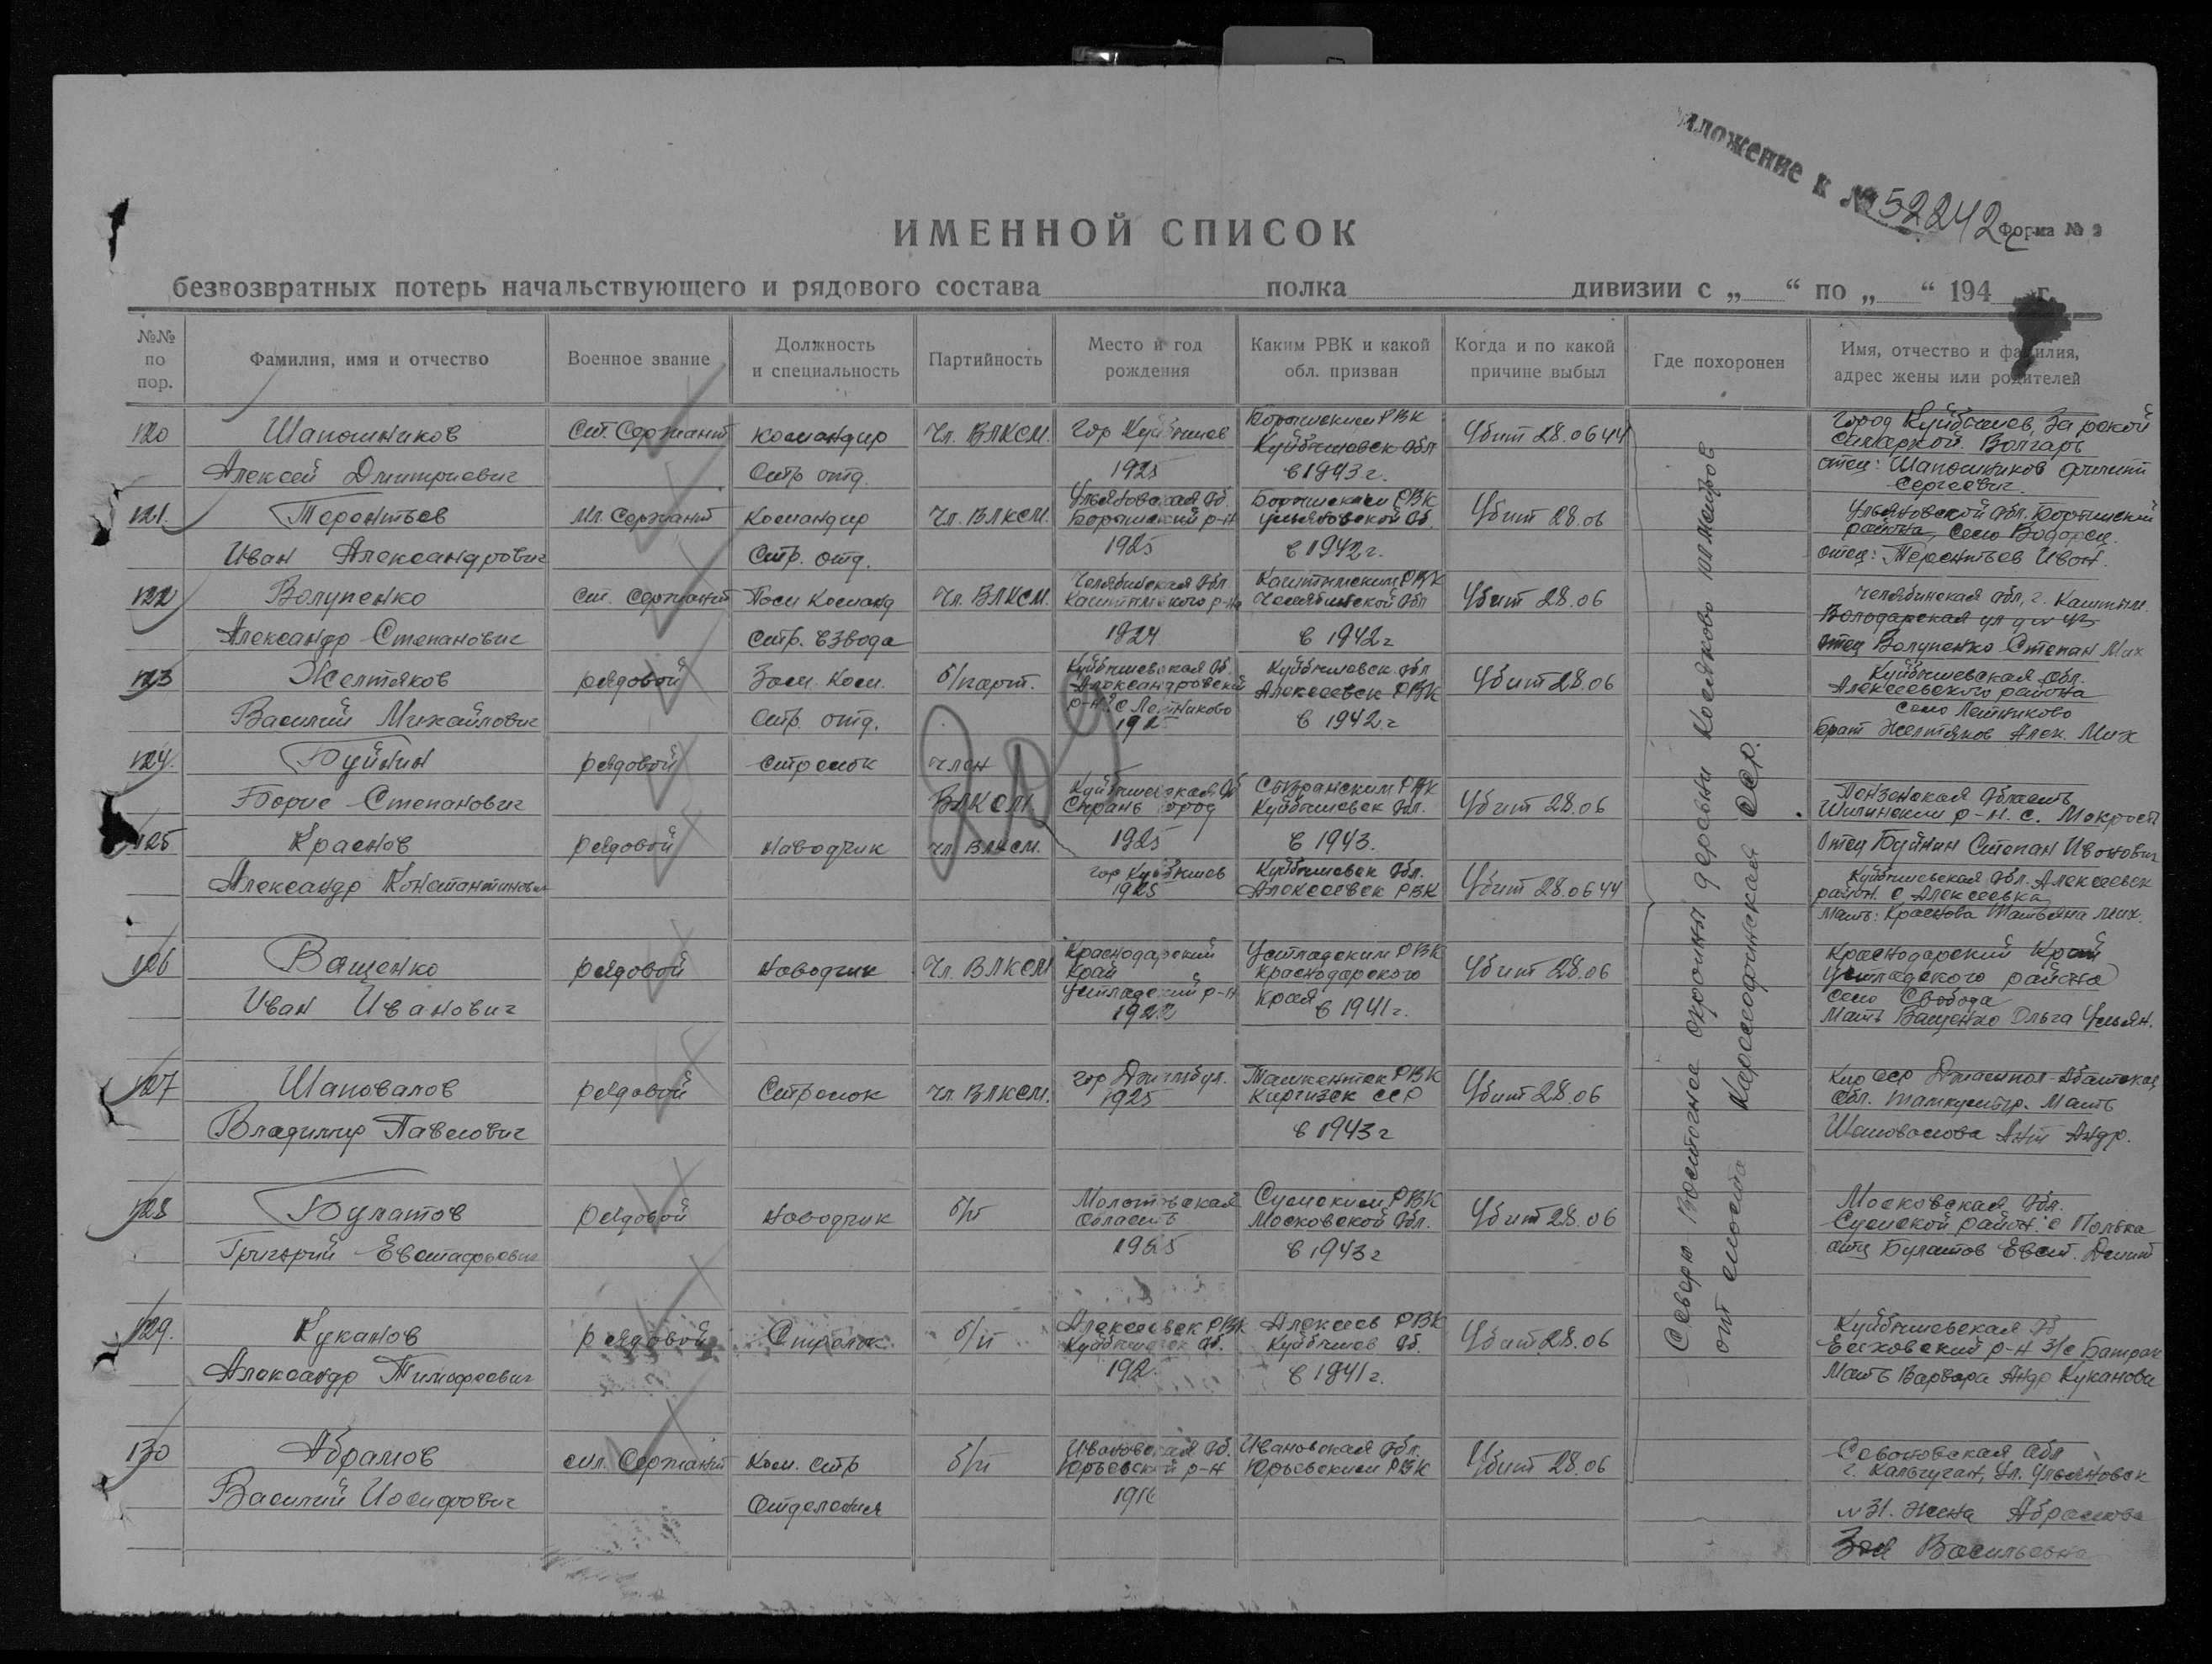 иложение к № 52242
Форма № 2
ИМЕННОЙ СПИСОК
безвозвратных потерь начальствующего и рядового состава полка дивизии с „ “ по „ “ 194 г.
№№ по пор.
Фамилия, имя и отчество
Военное звание
Должность и специальность
Партийность
Место и год рождения
Каким РВК и какой обл. призван
Когда и по какой причине выбыл
Где похоронен
Имя, отчество и фамилия, адрес жены или родителей
120 Шапошников Ст. Сержант командир Чл. ВЛКСМ. гор Куйбышев Куйбышевск обл Убит 28.06 44 город Куйбышев за рекой
Алексей Дмитриевич Стр отд. 1925 в 1943 г. отец: Шапошников
Сергеевич.
121. Терентьев Мл. Сержант Командир Чл. ВЛКСМ. Ульяновская об. РВК Ульяновской об. Убит 28.06 Ульяновской обл.
района, село
Иван Александрович Стр. отд. 1925 в 1942 г. отец: Терентьев Иван.
122 Волупенко Ст. Сержант Пом Команд Чл. ВЛКСМ. Челябинская обл Каштымским РВК Челябинской обл Убит 28.06 Челябинская обл, г. Каштым.
Володарская ул
Александр Степанович стр. взвода 1924 в 1942 г отец Волупенко Степан Мих
123 Желтяков рядовой Зам. Ком. б/парт. Куйбышевская об. Александровский р-н с Летниково Куйбышевск обл Алексеевск РВК Убит 28.06 Куйбышевская обл.
Алексеевского района
село Летниково
Василий Михайлович Стр. отд. 1925 в 1942 г Брат Желтяков Алек. Мих
124. Буйнин рядовой стрелок член
Борис Степанович ВЛКСМ Куйбышевская об Сызранским РВК Куйбышевск обл. Убит 28.06 Пензенская область
р-н. с.
1925 в 1943. Отец Буйнин Степан Иванович
125 Краснов рядовой наводчик чл. ВЛКСМ.
Александр Константинович гор Куйбышев 1925 Куйбышевск обл. Алексеевск РВК Убит 28.06 44 Куйбышевская обл. Алексеевск
район. с Алексеевка
мать: Краснова Татьяна Мих.
126 Ващенко рядовой наводчик Чл. ВЛКСМ Краснодарский край р-н Устладским РВК Краснодарского края Убит 28.06 Краснодарский Край
Устладского района
село Свобода
Иван Иванович 1922 в 1941 г. Мать Ващенко Ольга Ульян.
127 Шаповалов рядовой Стрелок чл. ВЛКСМ. 1925 РВК Киргизск ССР Убит 28.06 Кир ССР
обл. Мать
Владимир Павлович в 1943 г Шаповалова Ант Андр.
128 Булатов рядовой наводчик б/п Молотовская область Сукским РВК Московской обл. Убит 28.06 Московская обл.
район. с
Григорий Евстафьевич 1925 в 1943 г отц Булатов Евст.
129. Куканов рядовой Стрелок б/п Алексеевск РВК Куйбышевск об. Алексеев РВК Куйбышев об. Убит 28.06 Куйбышевская об
р-н
Александр Тимофеевич 192 в 1941 г. Мать Варвара Андр Куканова
130 Абрамов мл. Сержант Ком. стр б/п Ивановская об. Юрьевский р-н Ивановская обл. Юрьевским РВК Убит 28.06 обл
г. Кальчуган, ул. Ульяновск
Василий Иосифович Отделения 1916 № 31. жена Абрамова
Зоя Васильевна
Северо восточнее окраины деревни Косяково
от моста Карелофинская ССР.